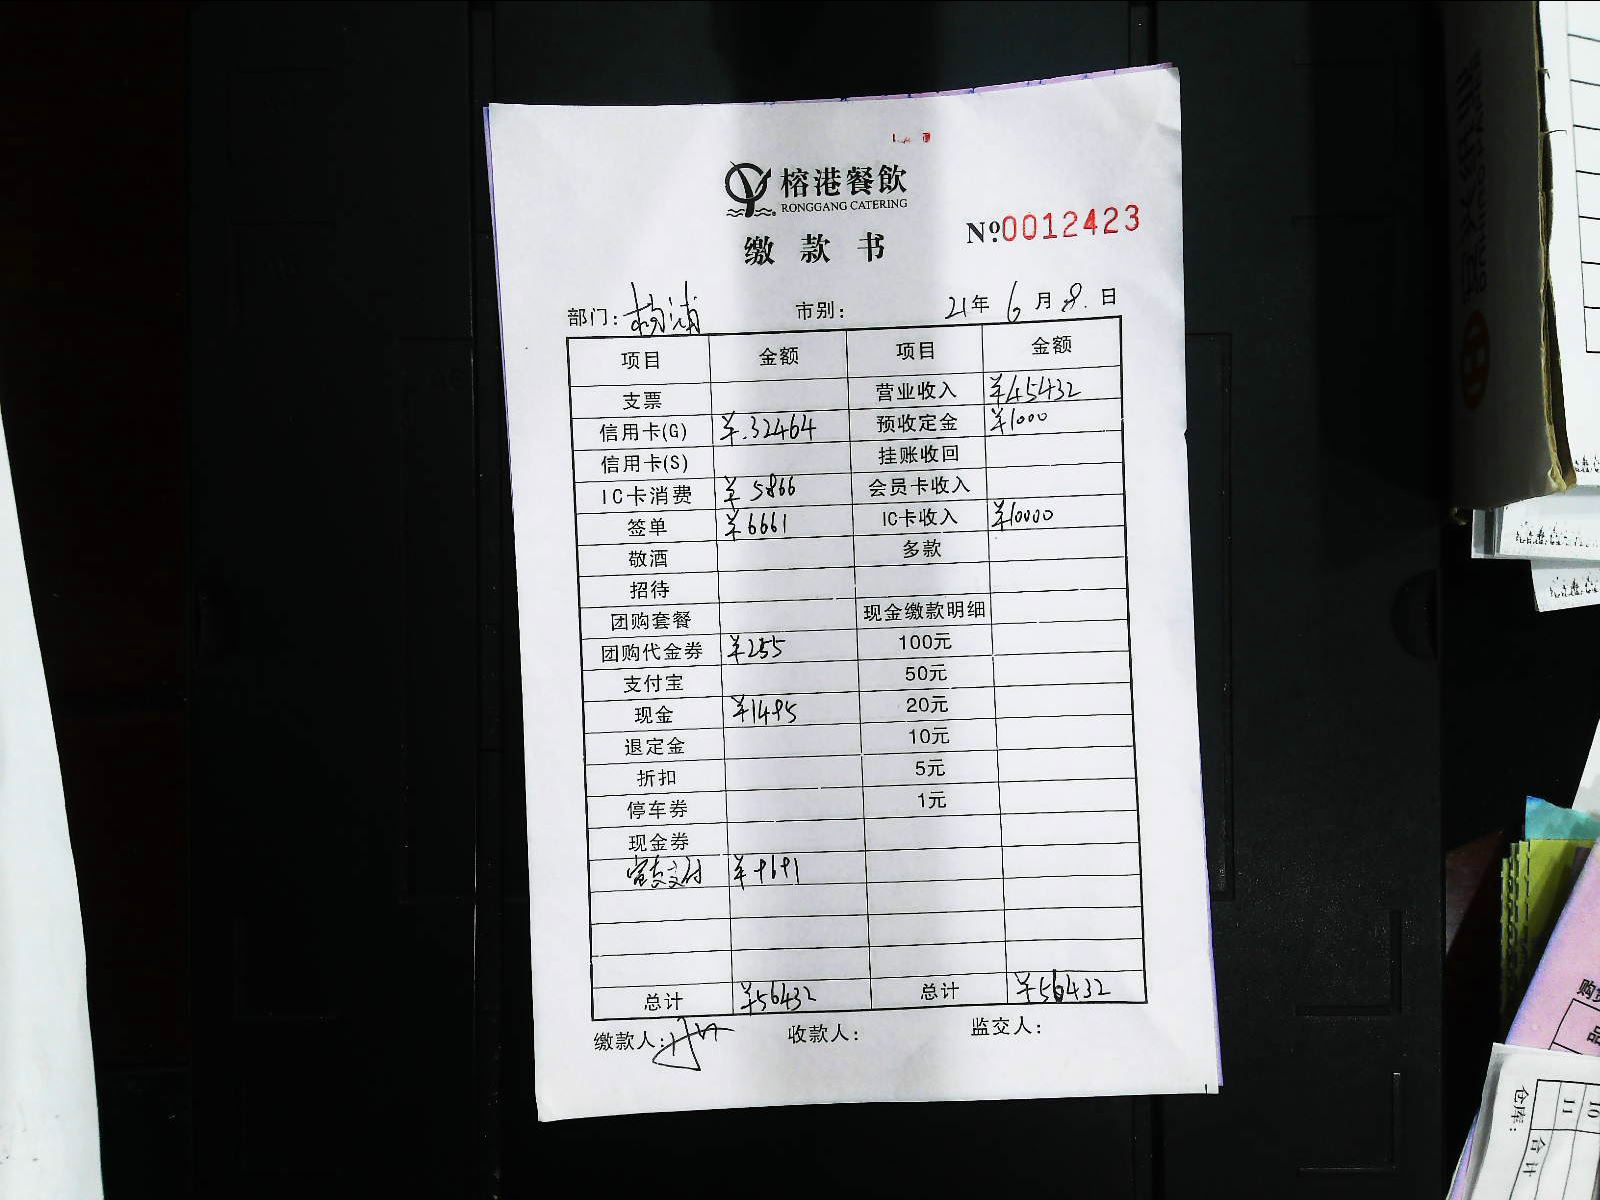 榕港餐飲
RONGGANG CATERING
缴款书
Nº0012423
部门：杨浦 市别： 21年6月8.日
项目 金额 项目 金额
支票 营业收入 ¥45432
信用卡(G) ¥.32464 预收定金 ¥1000
信用卡(S) 挂账收回
IC卡消费 ¥5866 会员卡收入
签单 ¥6661 IC卡收入 ¥10000
敬酒 多款
招待
团购套餐 现金缴款明细
团购代金券 ¥255 100元
支付宝 50元
现金 ¥1495 20元
退定金 10元
折扣 5元
停车券 1元
现金券
支付 ¥9691
总计 ¥56432 总计 ¥56432
缴款人： 收款人： 监交人：
购
品
仓库：
10
11
合计